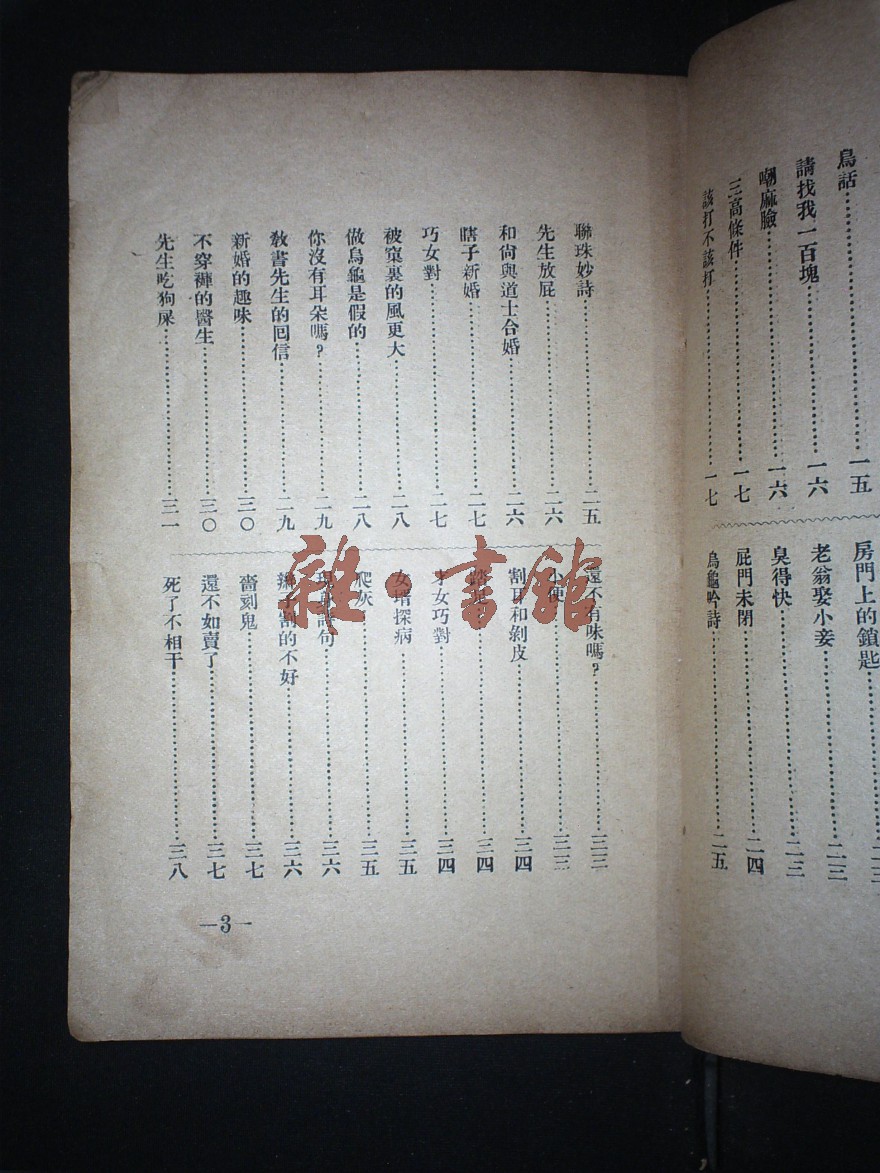 鳥話……一五
請找我一百塊……一六
嘲麻臉……一六
三高條件……一七
該打不該打……一七
房門上的鎖匙
老翁娶小妾……二三
臭得快……二三
屁門未閉……二四
烏龜吟詩……二五
聯珠妙詩……二五
先生放屁……二六
和尙與道士合婚……二六
瞎子新婚……二七
巧女對……二七
被窠裏的風更大……二八
做烏龜是假的……二八
你沒有耳朵嗎?……二九
敎書先生的囘信……二九
新婚的趣味……三〇
不穿褲的醫生……三〇
先生吃狗屎……三一
還不有味嗎?……三三
小便……三三
割耳和剝皮……三四
……三四
才女巧對……三四
女壻探病……三五
爬灰……三五
句……三六
割的不好……三六
嗇刻鬼……三七
還不如賣了……三七
死了不相干……三八
—3—
雜·書館